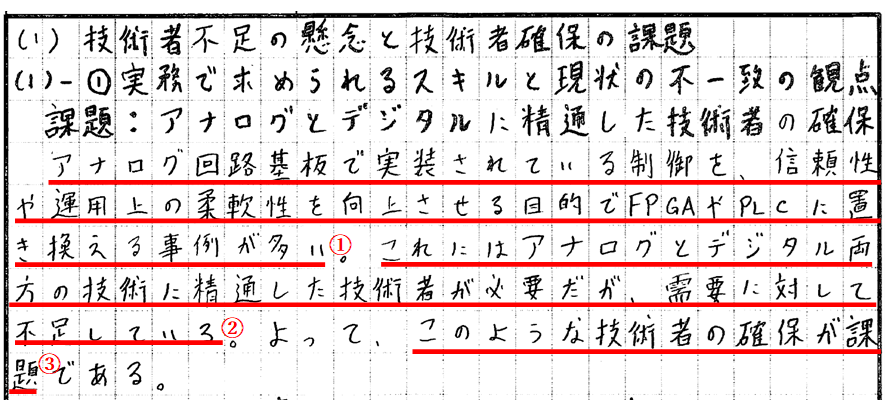 (1) 技術者不足の懸念と技術者確保の課題
(1)-①実務で求められるスキルと現状の不一致の観点
課題：アナログとデジタルに精通した技術者の確保
アナログ回路基板で実装されている制御を、信頼性
や運用上の柔軟性を向上させる目的でFPGAやPLCに置
き換える事例が多い①。これにはアナログとデジタル両
方の技術に精通した技術者が必要だが、需要に対して
不足している②。よって、このような技術者の確保が課
題③である。